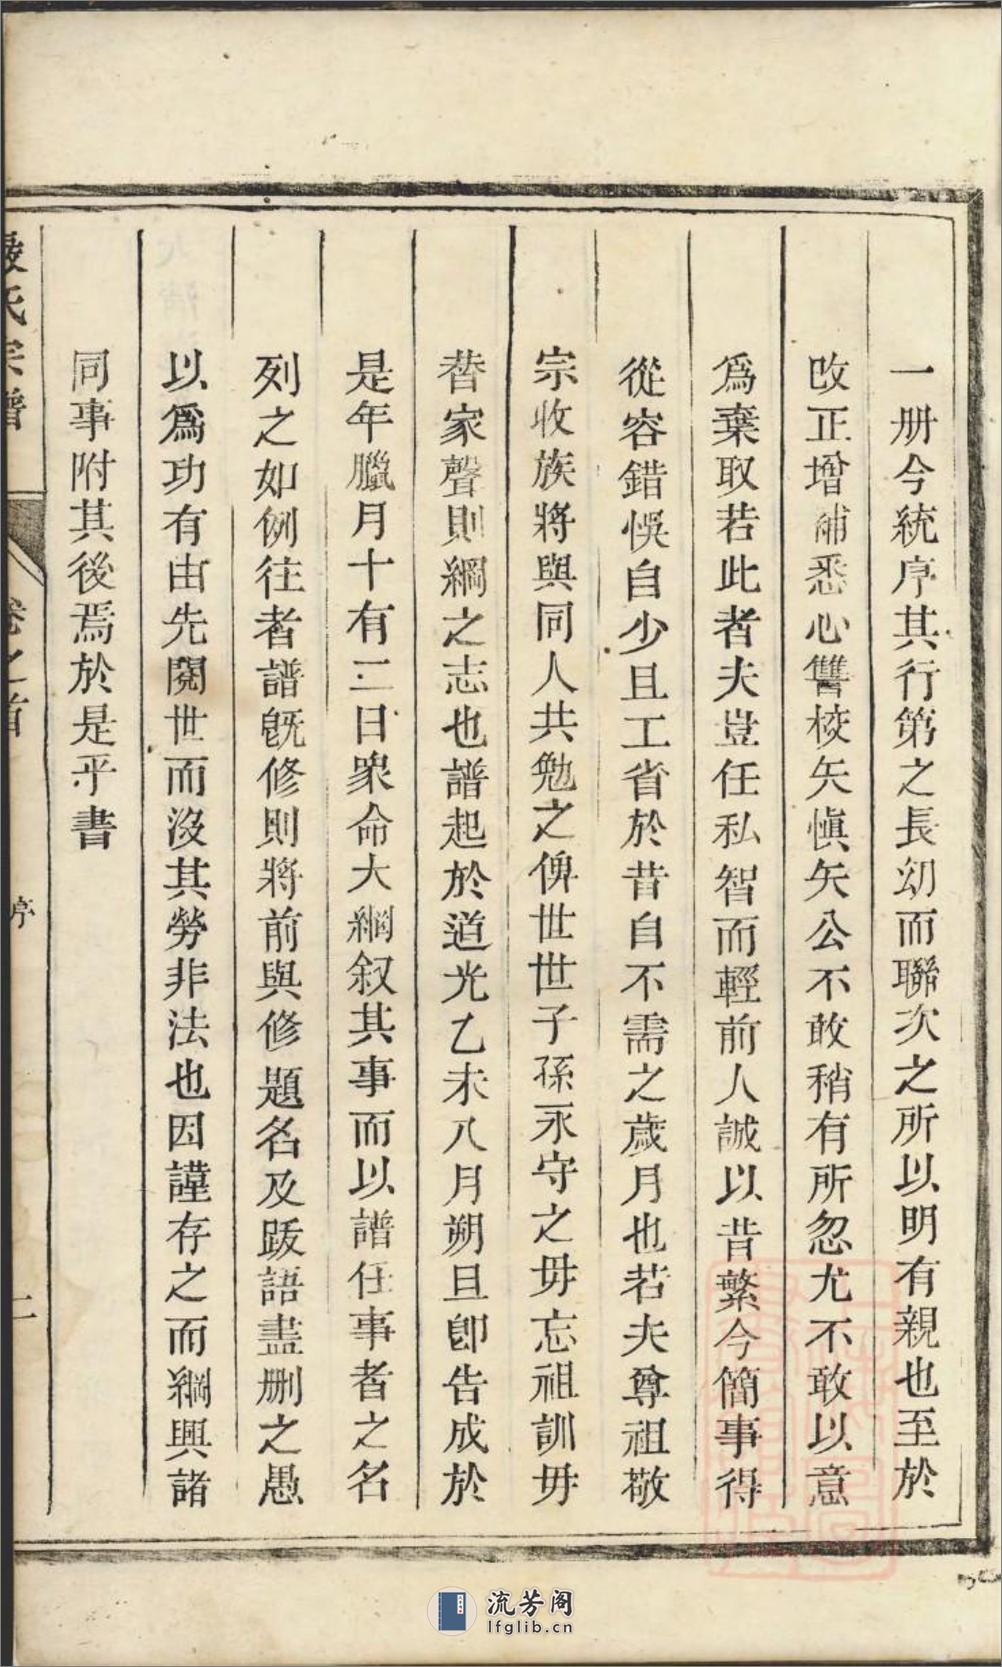 一册今統序其行第之長幼而聯次之所以明有親也至於
改正增補悉心讐校矢愼矢公不敢稍有所忽尤不敢以意
爲棄取若此者夫豈任私智而輕前人誠以昔繁今簡事得
從容錯悞自少且工省於昔自不需之歲月也若夫尊祖敬
宗收族將與同人共勉之俾世世子孫永守之毋忘祖訓毋
替家聲則綱之志也譜起於道光乙未八月朔且卽告成於
是年臘月十有二日衆命大綱叙其事而以譜任事者之名
列之如例往者譜旣修則將前與修題名及䟦語盡刪之愚
以爲功有由先閱世而沒其勞非法也因謹存之而綱與諸
同事附其後焉於是乎書
嚴氏宗譜
卷之首
序
二
流芳阁
lfglib.cn